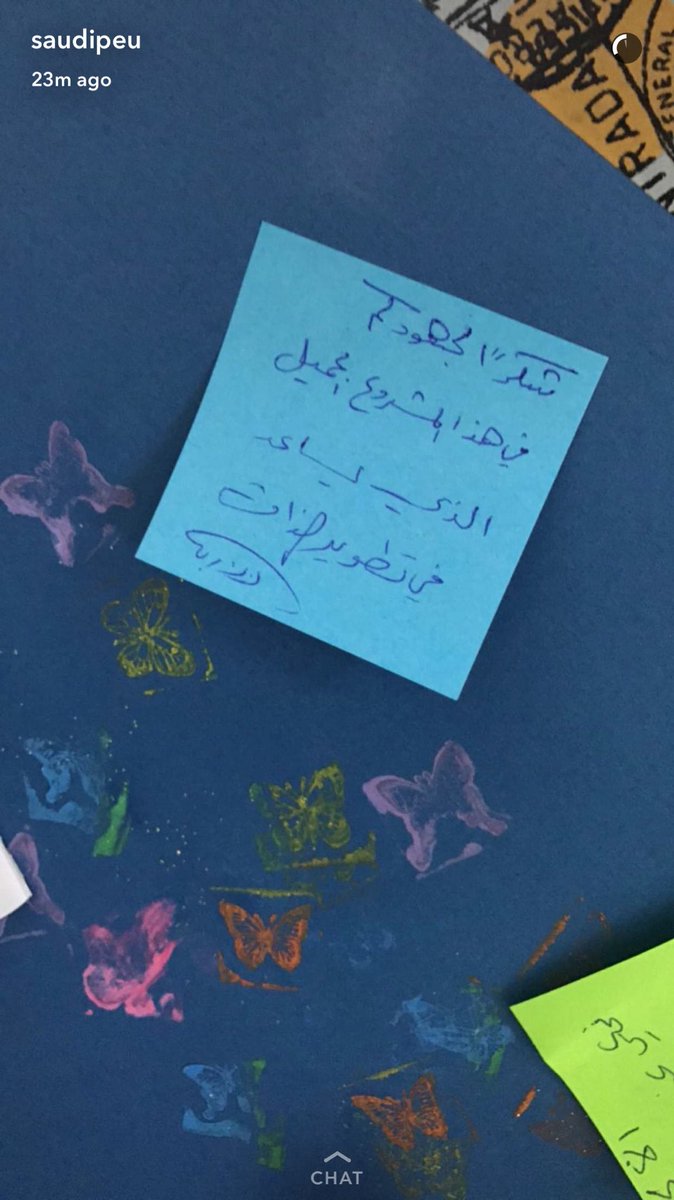 saudipeu
23m ago
NIRADA
ENERAL
شكراً لمجهودكم
في هذا المشروع الجميل
الذي يساعد
في تطوير الذات
CHAT